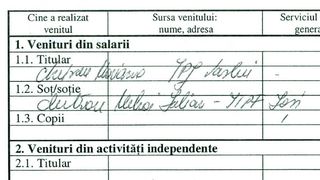 Cine a realizat venitul
Sursa venitului: nume, adresa
Serviciul
genera
1. Venituri din salarii
1.1. Titular
IPJ Vaslui -
1.2. Soț/soție
Mihai Iulian -
1.3. Copii
2. Venituri din activități independente
2.1. Titular